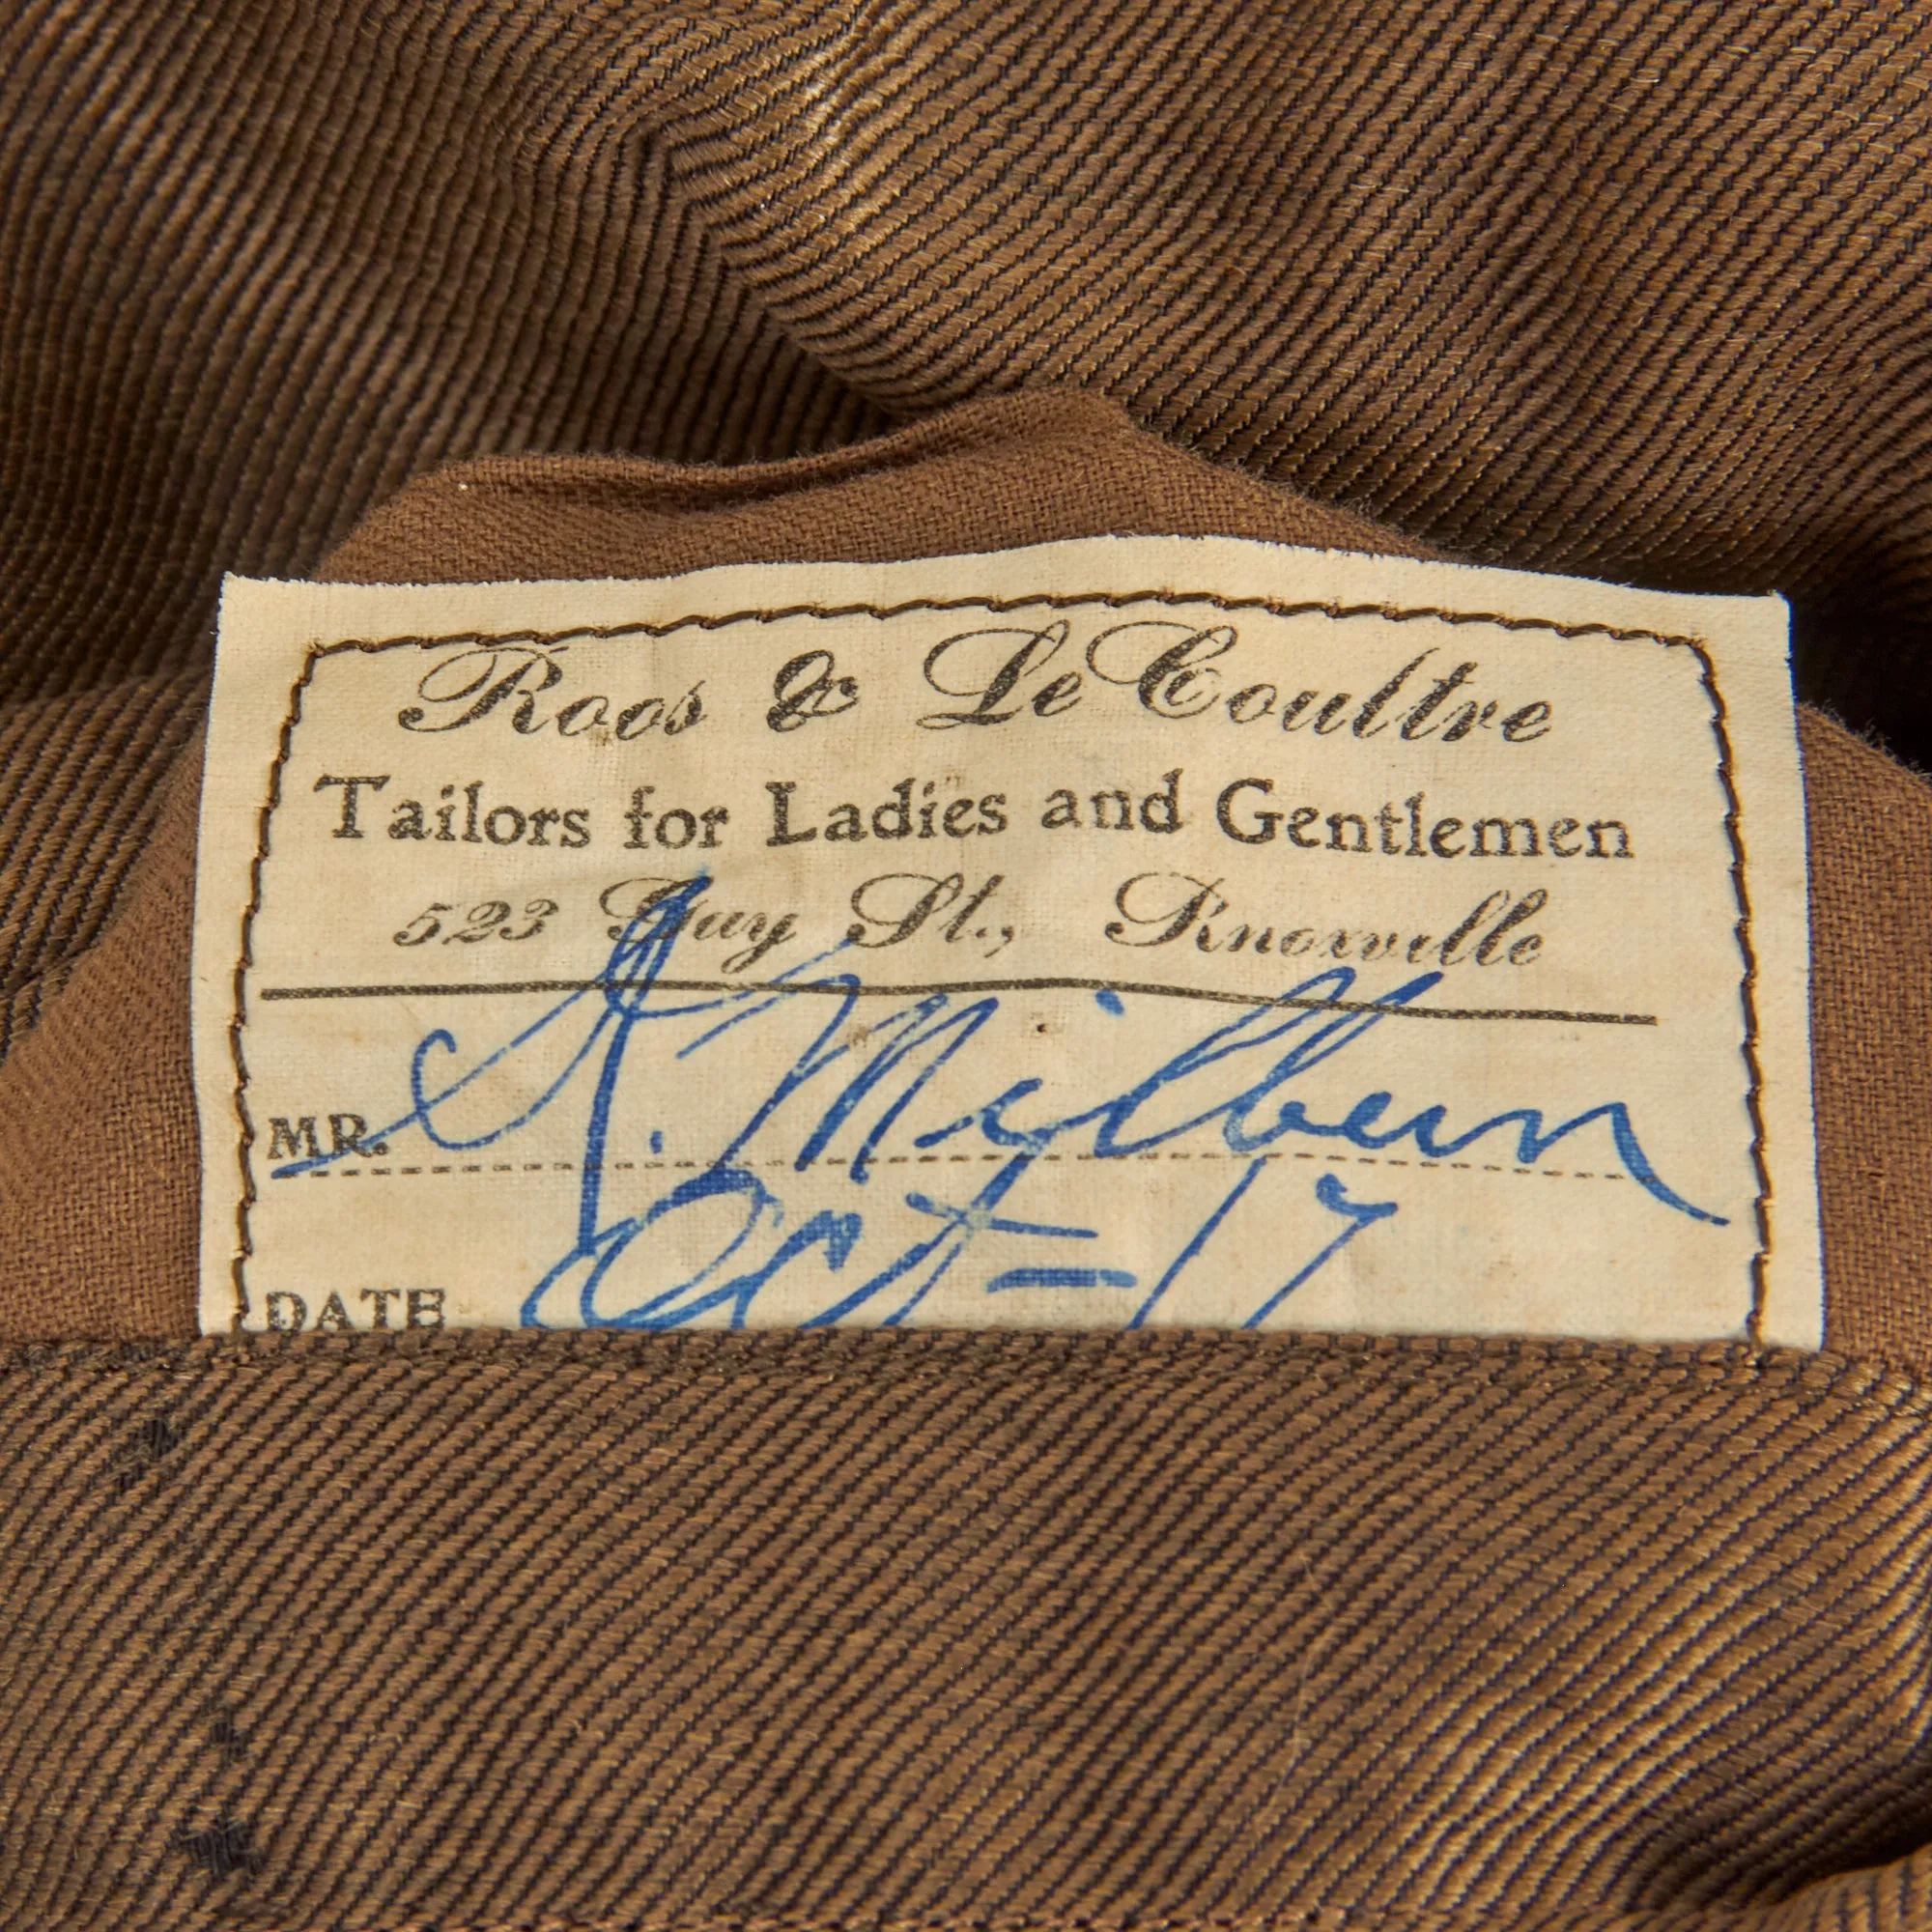 Roos & LeCoultre
Tailors for Ladies and Gentlemen
523 Gay St., Knoxville
MR. S. Milburn
DATE Oct-17